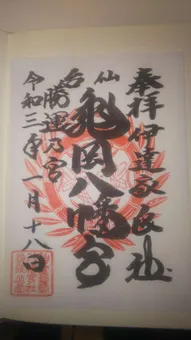 奉拝 伊達家氏社
仙台
龜岡八幡宮
勝運乃宮
令和三年一月十八日